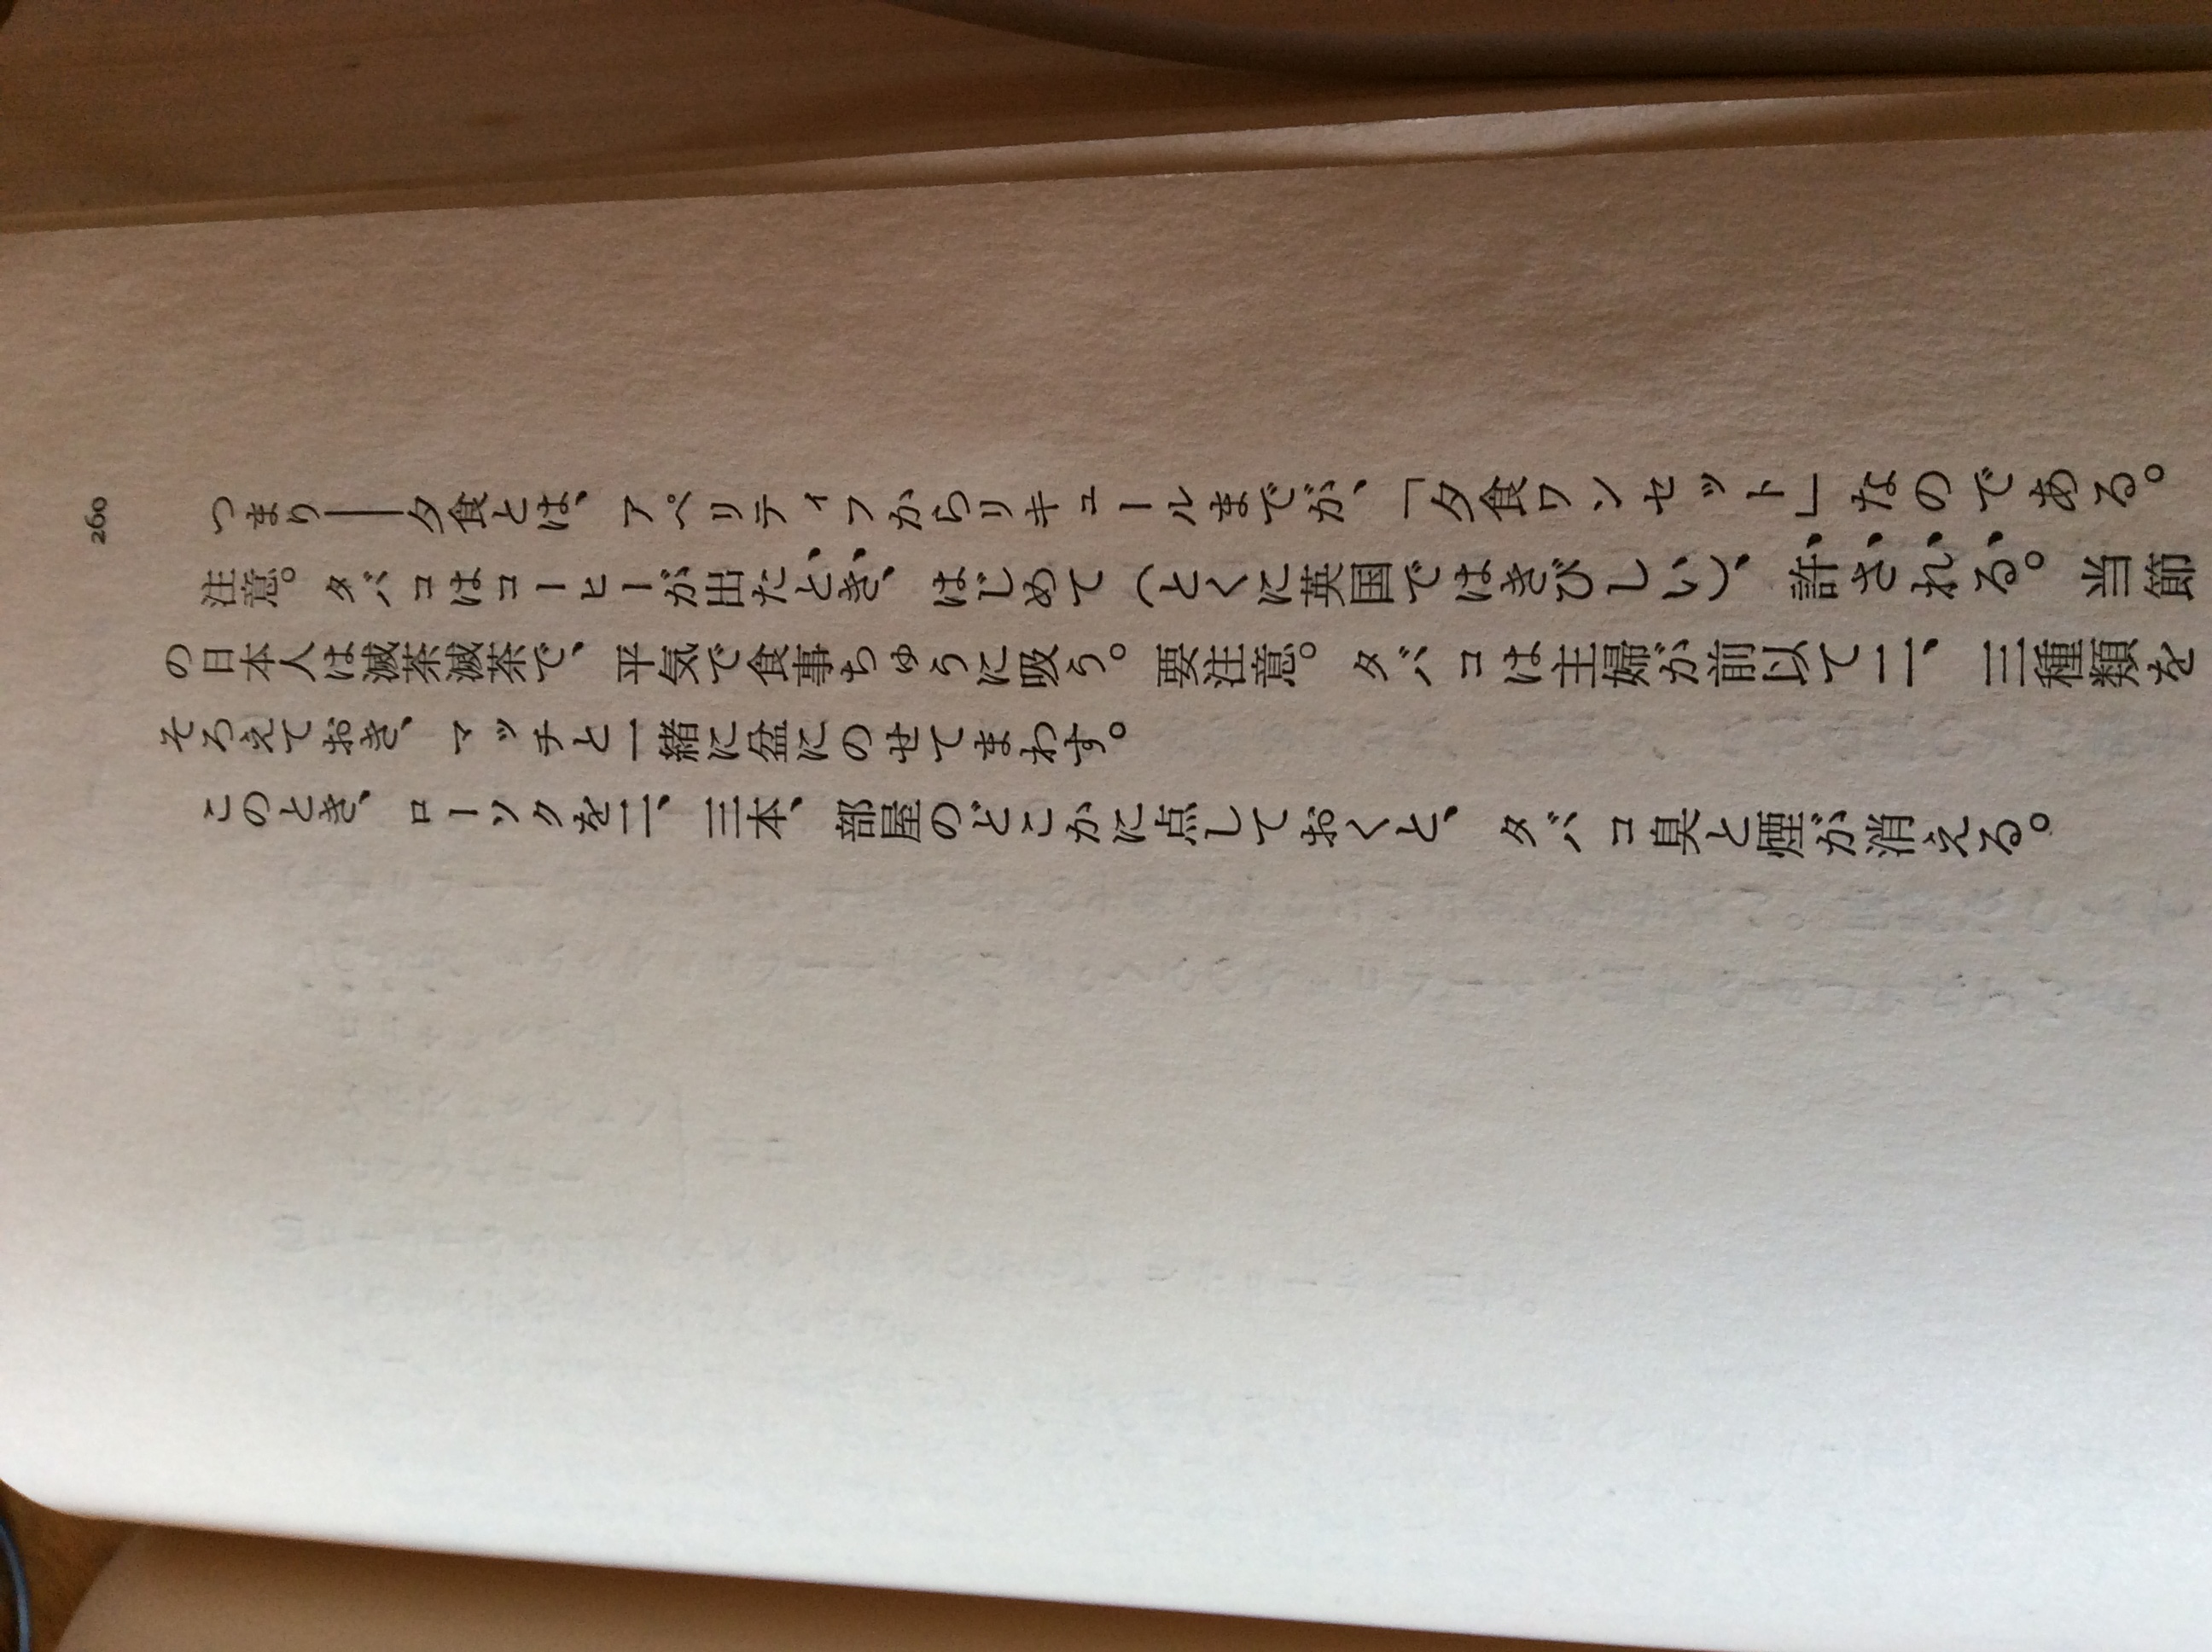 260
つまり――夕食とは、アペリティフからリキュールまでが、「夕食ワンセット」なのである。
注意。タバコはコーヒーが出たとき、はじめて（とくに英国ではきびしい）、許される。当節
の日本人は滅茶滅茶で、平気で食事ちゅうに吸う。要注意。タバコは主婦が前以て二、三種類を
そろえておき、マッチと一緒に盆にのせてまわす。
このとき、ローソクを二、三本、部屋のどこかに点しておくと、タバコ臭と煙が消える。